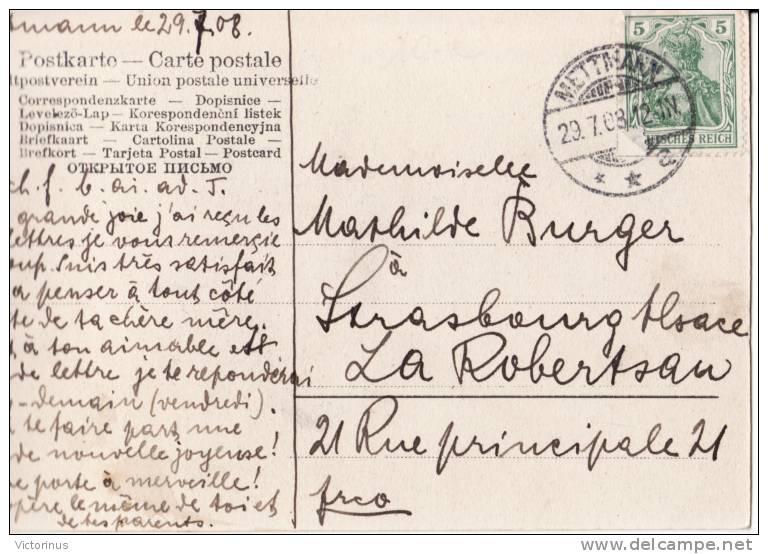 mann le 29.7.08.
Postkarte — Carte postale
ltpostverein — Union postale universelle
Correspondenzkarte — Dopisnice —
Levelező-Lap — Korespondenční listek
Dopisnica — Karta Korespondencyjna
Briefkaart — Cartolina Postale —
Brefkort — Tarjeta Postal — Postcard
ОТКРЫТОЕ ПИСЬМО
ch. f. b. ai. ad. T.
grande joie j'ai reçu les
lettres je vous remercie
oup. Suis très satisfait
a penser à tout côté
te de ta chère mère.
à ton aimable
de lettre je te reponderai
-demain (vendredi).
te faire part une
de nouvelle joyeuse!
e porte à merveille!
père le même de toi et
de tes parents.
5 5
DEUTSCHES REICH
METTMANN
29.7.08.12-1N
Mademoiselle
Mathilde Burger
à
Strasbourg Alsace
La Robertsau
21 Rue principale 21
frco
© Victorinus
http://www.delcampe.net